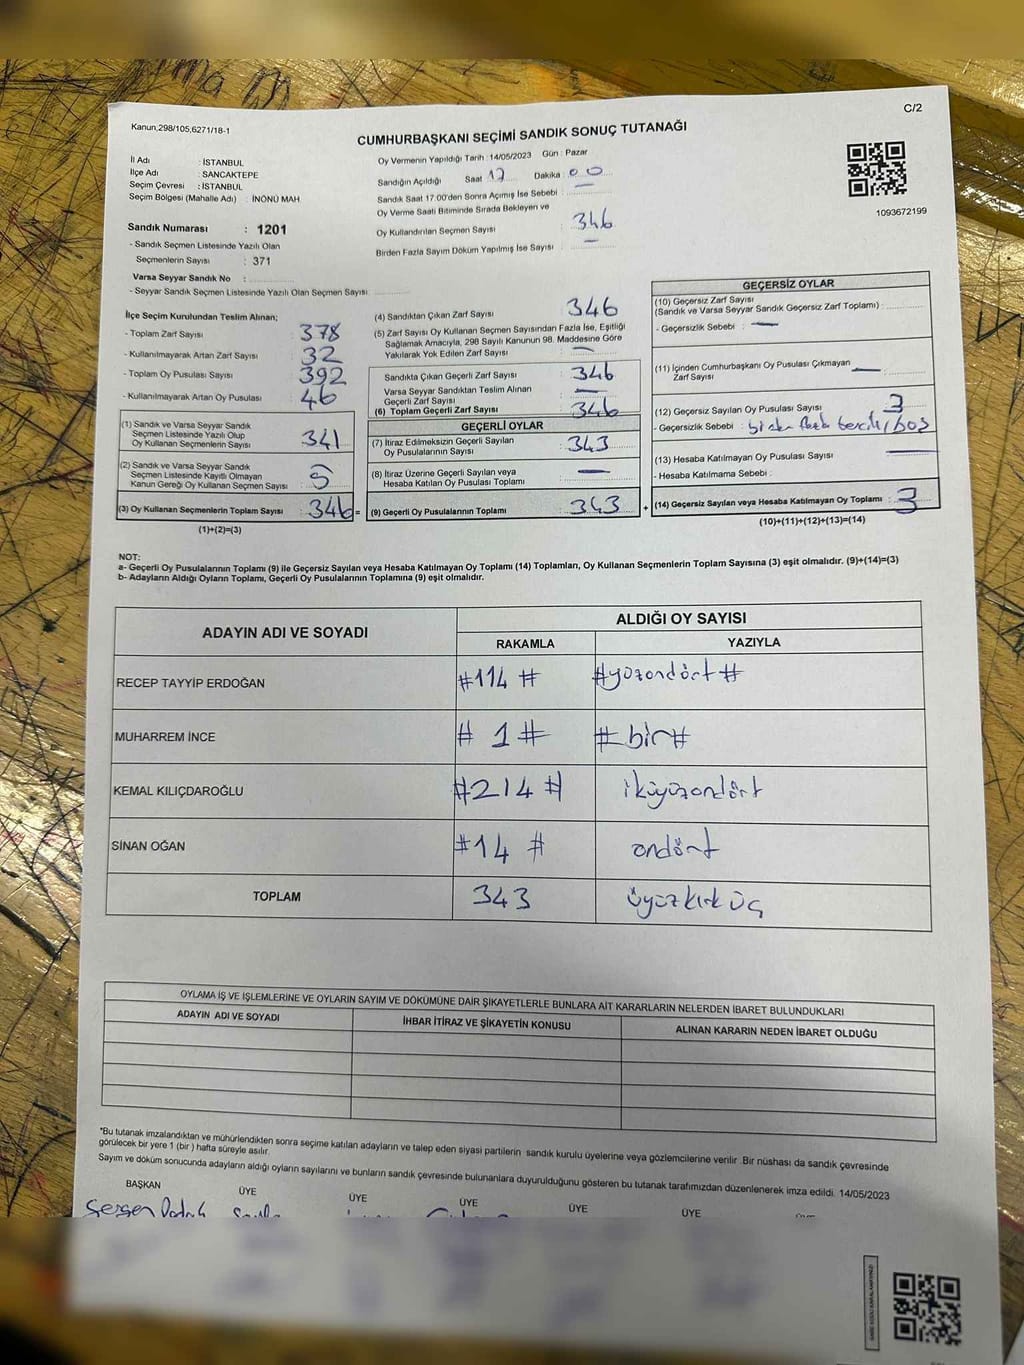 C/2
Kanun;298/105,6271/18-1
CUMHURBAŞKANI SEÇİMİ SANDIK SONUÇ TUTANAĞI
İl Adı : İSTANBUL
İlçe Adı : SANCAKTEPE
Seçim Çevresi : İSTANBUL
Seçim Bölgesi (Mahalle Adı) : İNÖNÜ MAH
Sandık Numarası : 1201
- Sandık Seçmen Listesinde Yazılı Olan
Seçmenlerin Sayısı : 371
Varsa Seyyar Sandık No :
- Seyyar Sandık Seçmen Listesinde Yazılı Olan Seçmen Sayısı:
Oy Vermenin Yapıldığı Tarih : 14/05/2023 Gün : Pazar
Sandığın Açıldığı Saat : 17 Dakika : 00
Sandık Saat 17.00'den Sonra Açımış İse Sebebi : —
Oy Verme Saati Bitiminde Sırada Bekleyen ve
Oy Kullandırılan Seçmen Sayısı : 346
Birden Fazla Sayım Döküm Yapılmış İse Sayısı : —
1093672199
İlçe Seçim Kurulundan Teslim Alınan;
- Toplam Zarf Sayısı : 378
- Kullanılmayarak Artan Zarf Sayısı : 32
- Toplam Oy Pusulası Sayısı : 392
- Kullanılmayarak Artan Oy Pusulası : 46
(1) Sandık ve Varsa Seyyar Sandık
Seçmen Listesinde Yazılı Olup
Oy Kullanan Seçmenlerin Sayısı : 341
(2) Sandık ve Varsa Seyyar Sandık
Seçmen Listesinde Kayıtlı Olmayan
Kanun Gereği Oy Kullanan Seçmen Sayısı : 5
(3) Oy Kullanan Seçmenlerin Toplam Sayısı : 346 =
(1)+(2)=(3)
(4) Sandıktan Çıkan Zarf Sayısı : 346
(5) Zarf Sayısı Oy Kullanan Seçmen Sayısından Fazla İse, Eşitliği
Sağlamak Amacıyla, 298 Sayılı Kanunun 98. Maddesine Göre
Yakılarak Yok Edilen Zarf Sayısı : —
Sandıkta Çıkan Geçerli Zarf Sayısı : 346
Varsa Seyyar Sandıktan Teslim Alınan
Geçerli Zarf Sayısı : —
(6) Toplam Geçerli Zarf Sayısı : 346
GEÇERLİ OYLAR
(7) İtiraz Edilmeksizin Geçerli Sayılan
Oy Pusulalarının Sayısı : 343
(8) İtiraz Üzerine Geçerli Sayılan veya
Hesaba Katılan Oy Pusulası Toplamı : —
(9) Geçerli Oy Pusulalarının Toplamı : 343 +
GEÇERSİZ OYLAR
(10) Geçersiz Zarf Sayısı
(Sandık ve Varsa Seyyar Sandık Geçersiz Zarf Toplamı) :
- Geçersizlik Sebebi : —
(11) İçinden Cumhurbaşkanı Oy Pusulası Çıkmayan
Zarf Sayısı : —
(12) Geçersiz Sayılan Oy Pusulası Sayısı : 3
- Geçersizlik Sebebi : birden fazla tercih/boş
(13) Hesaba Katılmayan Oy Pusulası Sayısı : —
- Hesaba Katılmama Sebebi :
(14) Geçersiz Sayılan veya Hesaba Katılmayan Oy Toplamı : 3
(10)+(11)+(12)+(13)=(14)
NOT:
a- Geçerli Oy Pusulalarının Toplamı (9) ile Geçersiz Sayılan veya Hesaba Katılmayan Oy Toplamı (14) Toplamları, Oy Kullanan Seçmenlerin Toplam Sayısına (3) eşit olmalıdır. (9)+(14)=(3)
b- Adayların Aldığı Oyların Toplamı, Geçerli Oy Pusulalarının Toplamına (9) eşit olmalıdır.
ADAYIN ADI VE SOYADI ALDIĞI OY SAYISI
RAKAMLA YAZIYLA
RECEP TAYYİP ERDOĞAN #114 # #yüzondört#
MUHARREM İNCE # 1 # # bir#
KEMAL KILIÇDAROĞLU #214 # ikiyüzondört
SİNAN OĞAN #14 # ondört
TOPLAM 343 üçyüzkırküç
OYLAMA İŞ VE İŞLEMLERİNE VE OYLARIN SAYIM VE DÖKÜMÜNE DAİR ŞİKAYETLERLE BUNLARA AİT KARARLARIN NELERDEN İBARET BULUNDUKLARI
ADAYIN ADI VE SOYADI İHBAR İTİRAZ VE ŞİKAYETİN KONUSU ALINAN KARARIN NEDEN İBARET OLDUĞU
*Bu tutanak imzalandıktan ve mühürlendikten sonra seçime katılan adayların ve talep eden siyasi partilerin sandık kurulu üyelerine veya gözlemcilerine verilir. Bir nüshası da sandık çevresinde
görülecek bir yere 1 (bir) hafta süreyle asılır.
Sayım ve döküm sonucunda adayların aldığı oyların sayılarını ve bunların sandık çevresinde bulunanlara duyurulduğunu gösteren bu tutanak tarafımızdan düzenlenerek imza edildi. 14/05/2023
BAŞKAN ÜYE ÜYE ÜYE ÜYE ÜYE